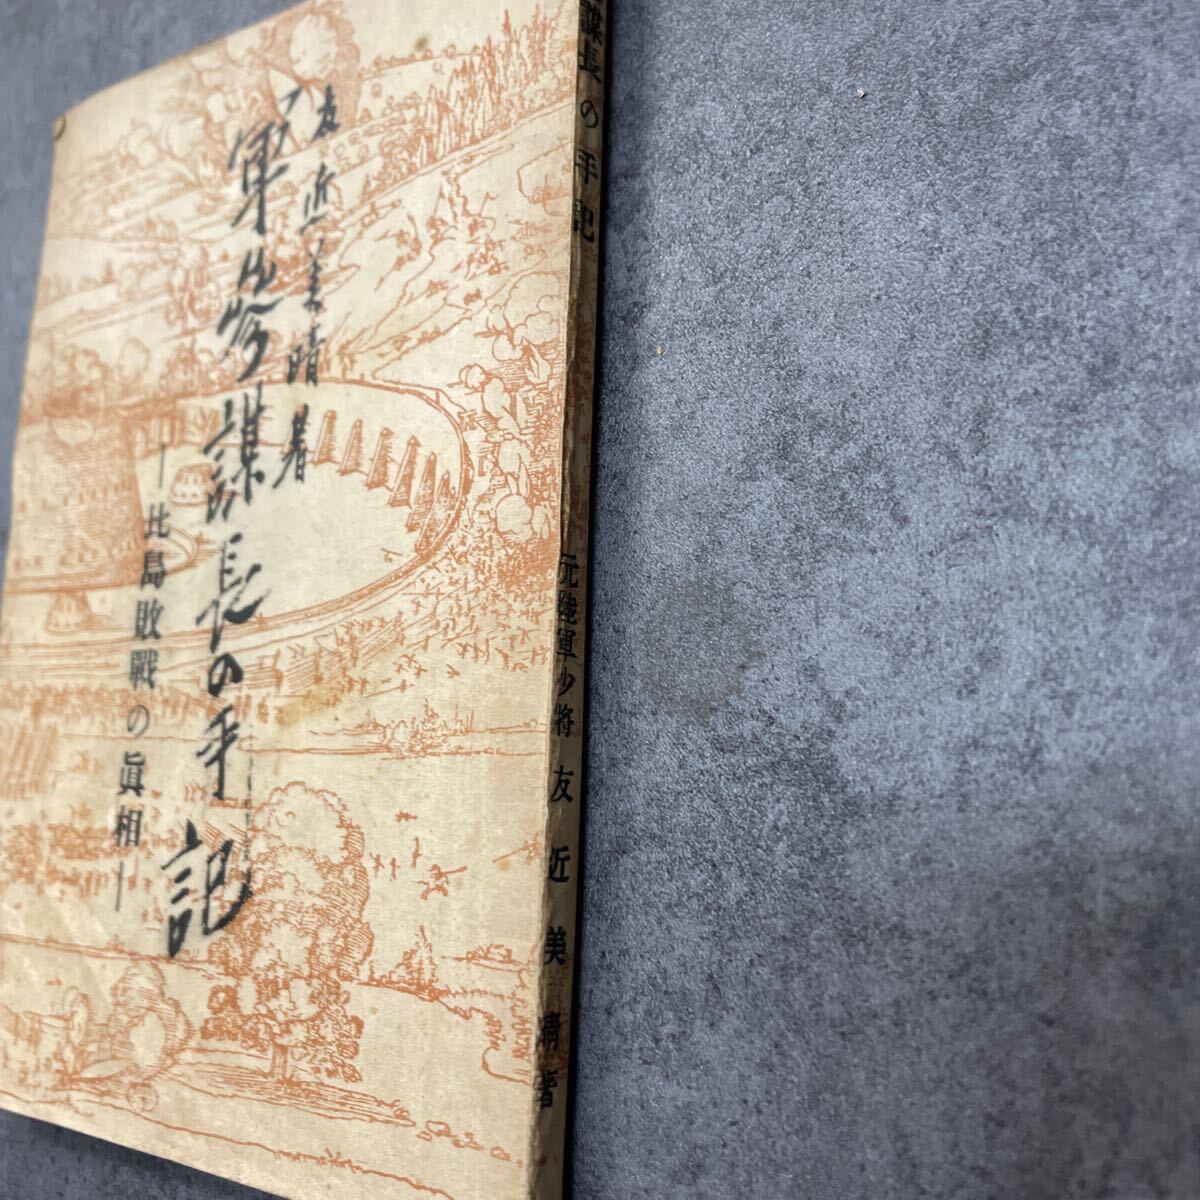 友近美晴著
軍参謀長の手記
―比島敗戰の眞相―
謀長の手記
元陸軍少将 友近美晴著